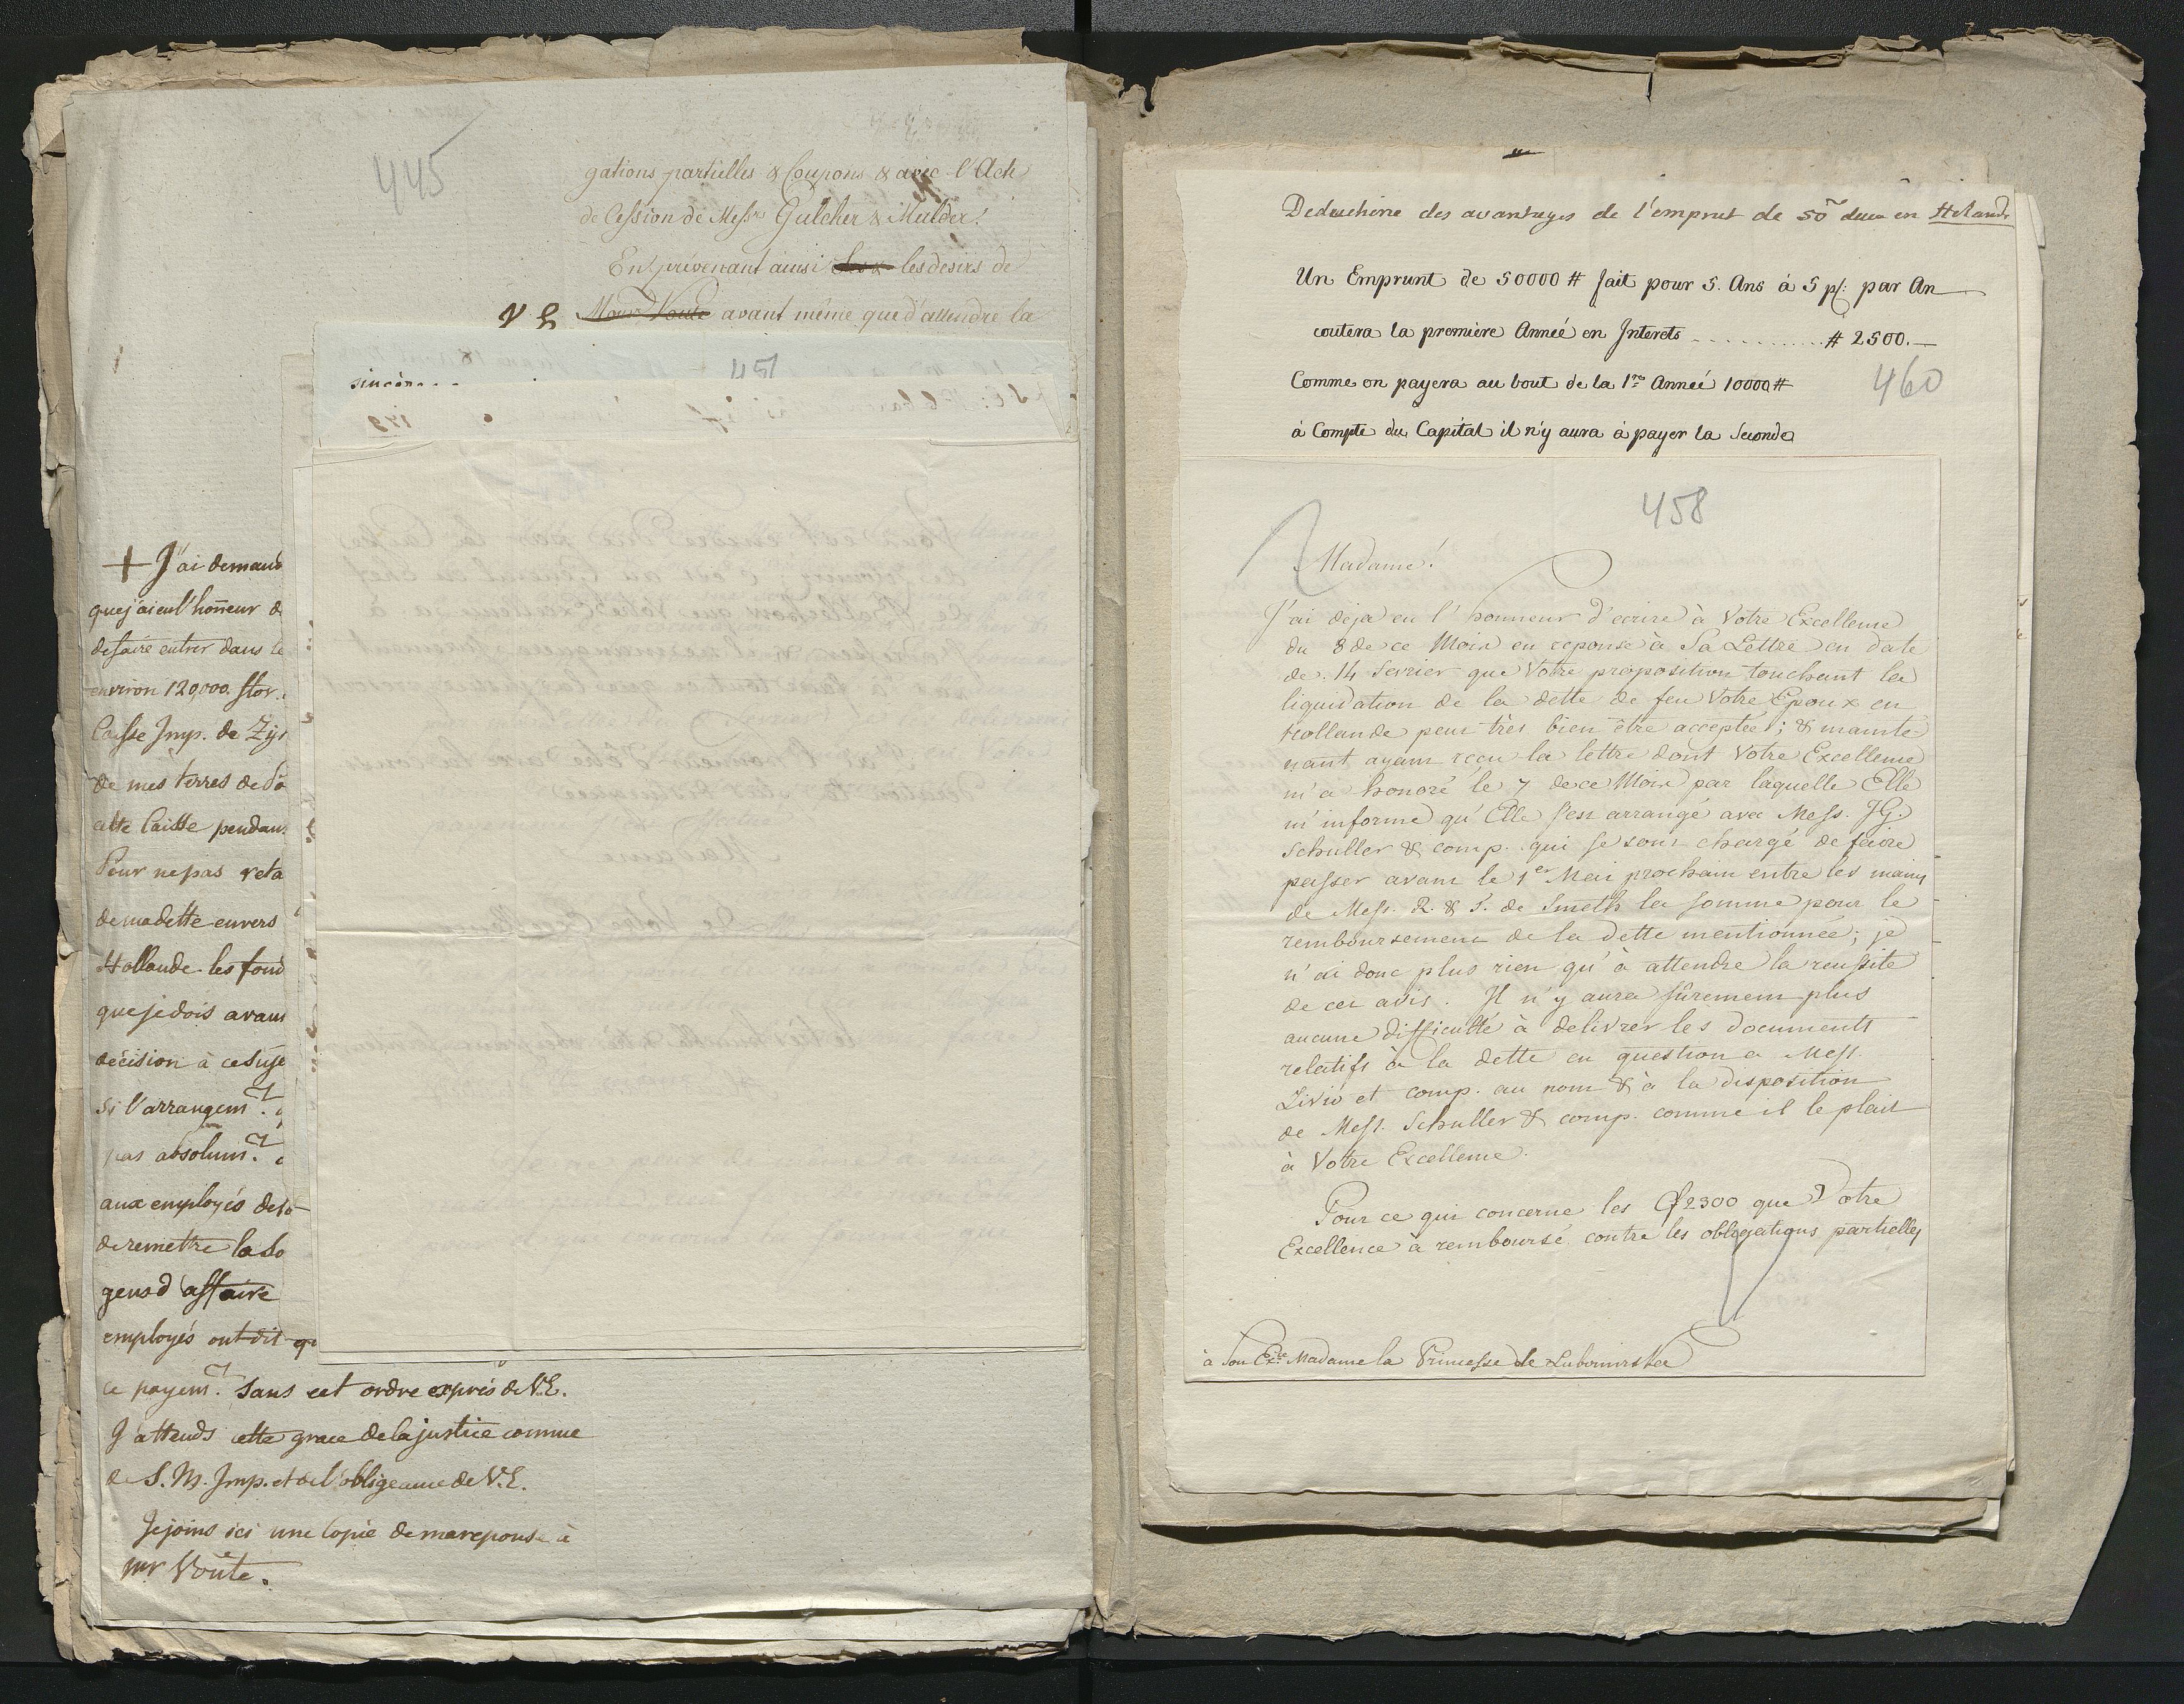 445
gations partielles & Coupons & avec l'Acte
de Cession de Messrs Gulcher & Mulder.
En prévenant ainsi les desirs de
V E Monsr Voute avant même que d'attendre la
451
sincèr...
+ J'ai demand
que j'ai eu l'honneur d
de faire entrer dans le
environ 120,000. flor.
Caisse Imp. de
de mes terres de
cette Caisse pendan
Pour ne pas reta
de ma dette envers
Hollande les fond
que je dois avan
décision à ce suje
si l'arrangemt.
pas absolumt.
aux employés de
de remettre la So
gens d'affaire
employés ont dit qu
ce payemt. sans cet ordre exprès de V.E.
J'attends cette grace de la justice comme
de S. M. Imp. et de l'obligeance de V.E.
Je joins ici une Copie de ma reponse à
Mr Voûte.
des avantages de l'emprut de 50 en
Un Emprunt de 50000 # fait pour 5. Ans à 5 p: par An
coutera la première Année en Interets ........... # 2500.—
Comme on payera au bout de la 1re Anneé 10000 #
460
à Compte du Capital il n'y aura à payer la Seconde
458
Madame!
J'ai deja eu l'honneur d'ecrire à Votre Excellence
du 8 de ce Mois en reponse à Sa Lettre en date
de 14 fevrier que Votre proposition touchant la
liquidation de la dette de feu Votre Epoux en
Hollande peut très bien être acceptée; & mainte-
nant ayant reçu la lettre dont Votre Excellence
m'a honoré le 7 de ce Mois par laquelle Elle
m'informe qu'Elle s'est arrangé avec Mess. JG.
Schuller & comp. qui se sont chargé de faire
passer avant le 1er Mai prochain entre les mains
de Mess. R. & T. de Smeth la somme pour le
remboursement de la dette mentionnée; je
n'ai donc plus rien qu'à attendre la reussite
de cet avis. Il n'y aura sûrement plus
aucune difficulté à delivrer les documents
relatifs à la dette en question a Mess.
Livio et comp. au nom & à la disposition
de Mess. Schuller & comp. comme il le plait
à Votre Excellence.
Pour ce qui concerne les f2300 que Votre
Excellence à remboursé contre les obligations partielles
à Son Exce Madame la Princesse de Lubomirska